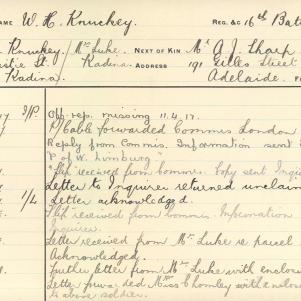 NAME W. H. Knuckey. REG. &c 16th Bat
Knuckey. / Mrs Luke. NEXT OF KIN Mr A. J. Tharp
St. Kadina. ADDRESS 191 Gilles Street
Kadina. Adelaide.
Off. rep. missing 11.4.17.
Cable forwarded Commis London
Reply from Commis. Information sent
P of W. Limburg.
Slip received from Commis. Copy sent
Letter to Inquirer returned unclaim
1/4 Letter acknowledged.
Slip received from Commis. Information
Inquirer.
Letter received from Mrs Luke re parcel
Acknowledged.
Further letter from Mrs Luke with enclos
Letter forwarded Miss Chomley with enclo
to above soldier.